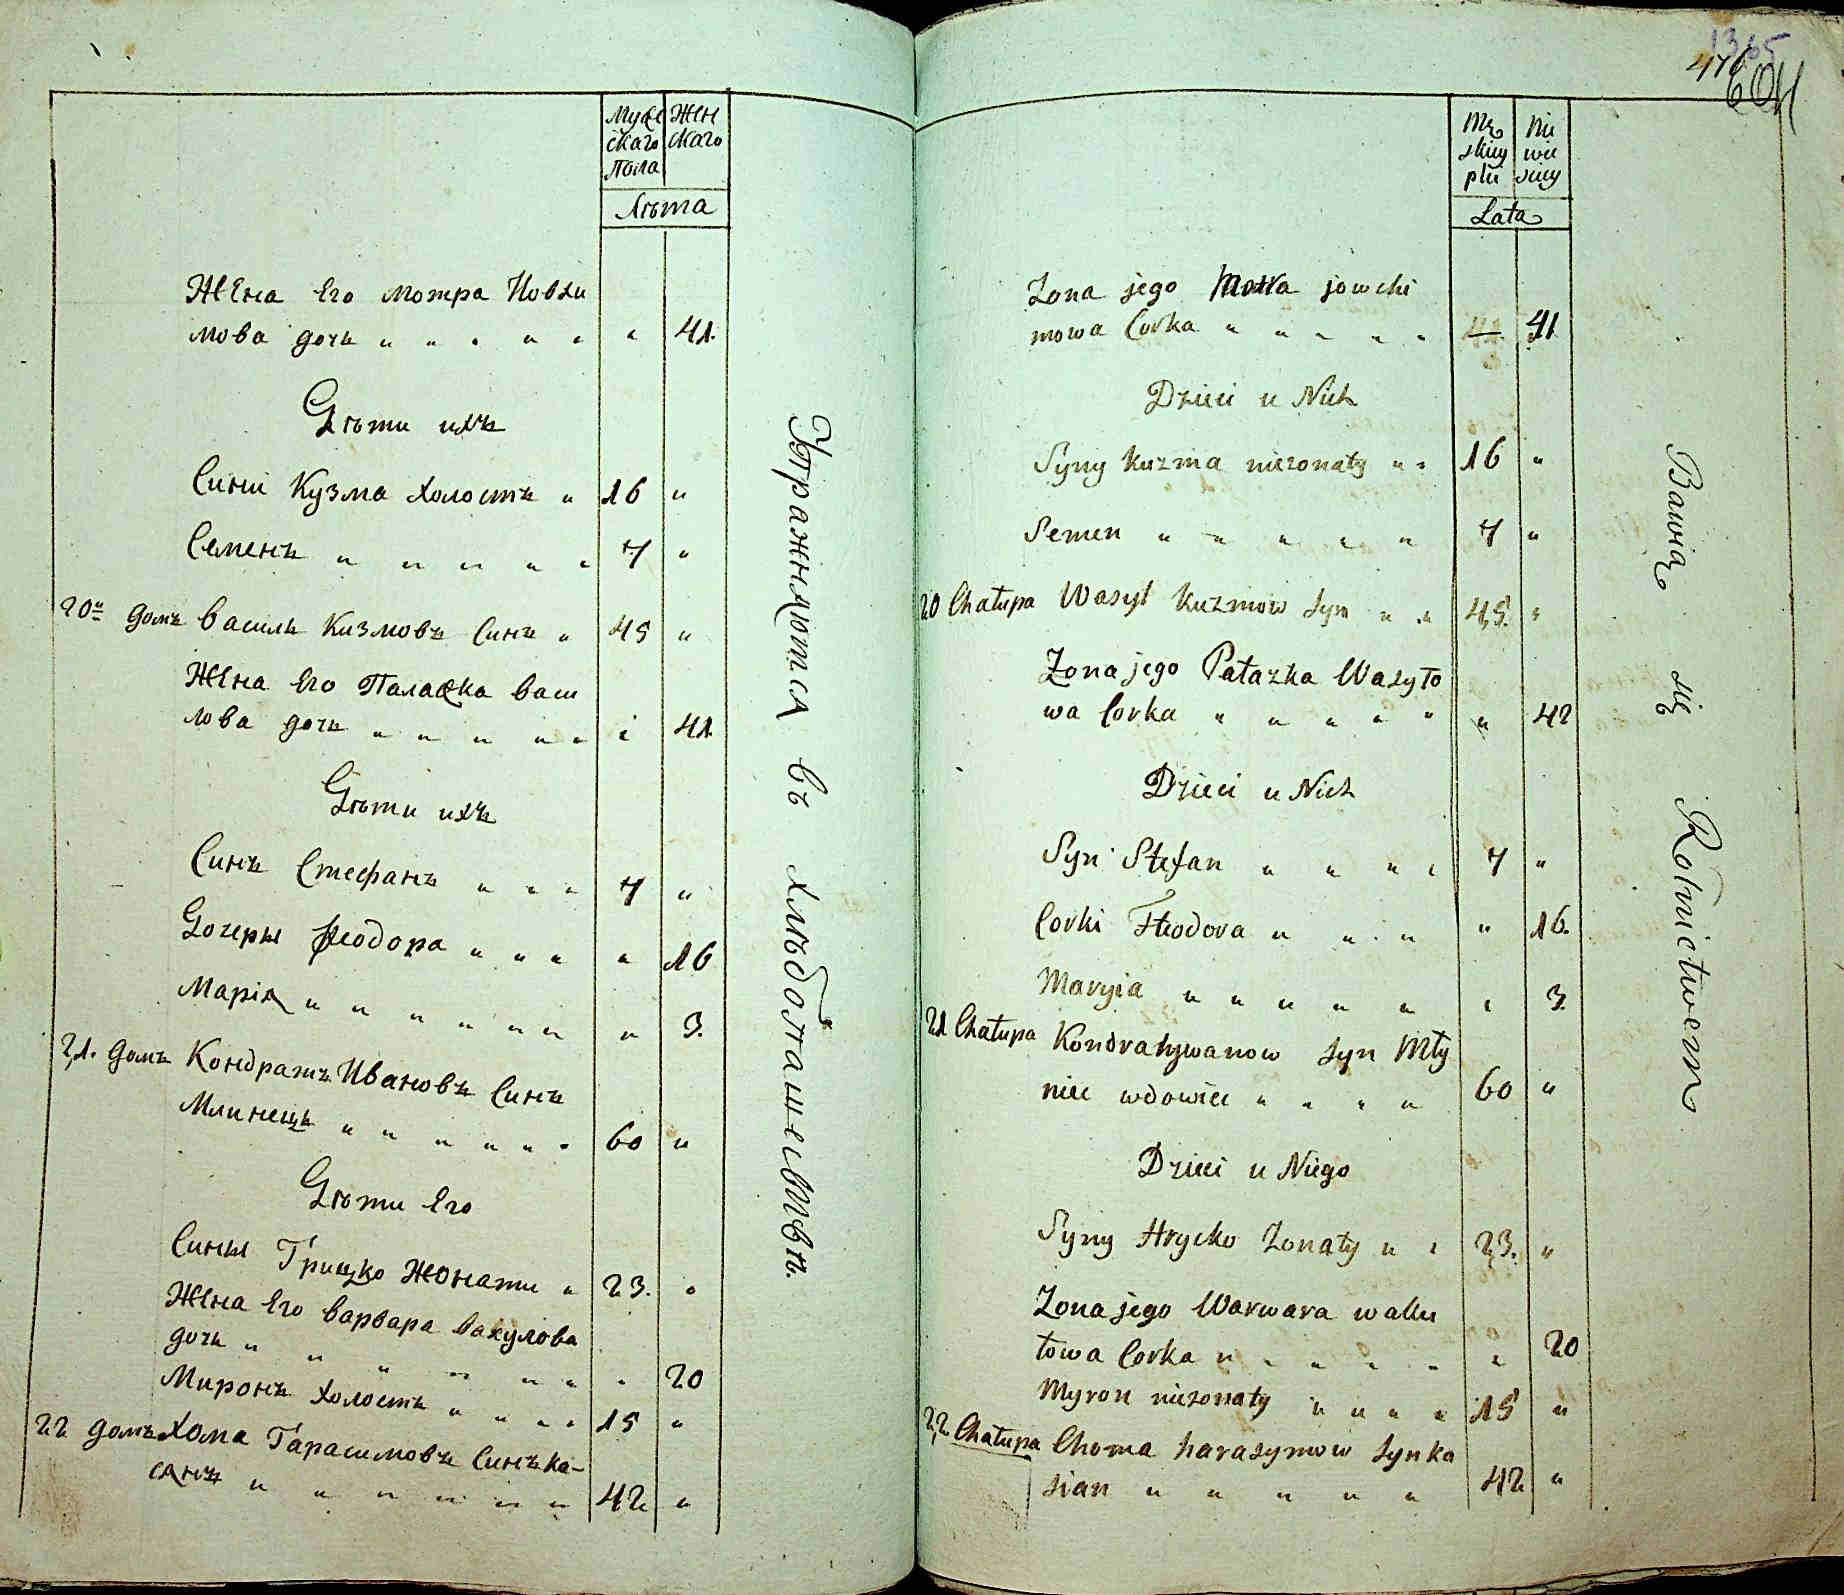 Мужескаго Пола
Женскаго
Лѣта
Жена Его Мотра Иовхи
мова дочь " " " " " " 41.
Дѣти ихъ
Сини Кузма Холостъ " 16 "
Семенъ " " " " " 7 "
20й домъ Василь Кизмовъ Синъ " 45 "
Жена Его Палажка Васи
лова дочь " " " " " " 41
Дѣти ихъ
Синъ Стефанъ " " " 7 "
Дочеры Феодора " " " " 16
Марія " " " " " " " 3.
21. домъ Кондратъ Ивановъ Синъ
Млинецъ " " " " " " 60 "
Дѣти Его
Сины Грицко Жонати " 23. "
Жена Его Варвара Вакулова
дочь " " " " " " " 20
Миронъ Холостъ " " " " 15 "
22 домъ Хома Гарасимовъ Синъ ка-
сянъ " " " " " " 42 "
Упражняются въ хлѣбопашествѣ.
1365
476
604
Męskiey płci
Niewiesciey
Lata
Zona jego Motra jowchi
mowa Corka " " " " " 41
Dzieci u Nich
Syny Kuzma niezonaty " " 16 "
Semen " " " " " 7 "
20 Chałupa Wasyl Kuzmow Syn " " 45. "
Zona jego Pałazka Wasyło
wa Corka " " " " " " 42
Dzieci u Nich
Syn Stefan " " " " 7 "
Corki Fteodora " " " " 16.
Maryia " " " " " " 3
21 Chałupa Kondrat ywanow Syn Mły
niec wdowiec " " " " 60 "
Dzieci u Niego
Syny Hrycko Zonaty " " 23. "
Zona jego Warwara waku
łowa Corka " " " " " " 20
Myron niezonaty " " " " 15 "
22 Chałupa Choma harasymow Syn ka
sian " " " " " 42 "
Bawią się Rolnictwem